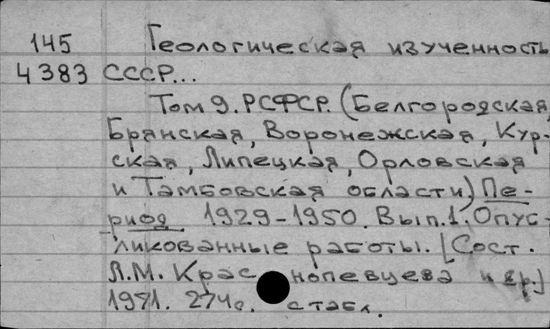 145 Геологическая изученность
4383 СССР...
Том 9. РСФСР. (Белгородская,
Брянская, Воронежская, Кур-
ская, Липецкая, Орловская
и Тамбовская области) Пе-
риод 1929-1950. Вып.1. Опуб-
ликованные работы. [Сост.
Л.М. Крас нопевцева и др.]
1971. 274с. с табл.